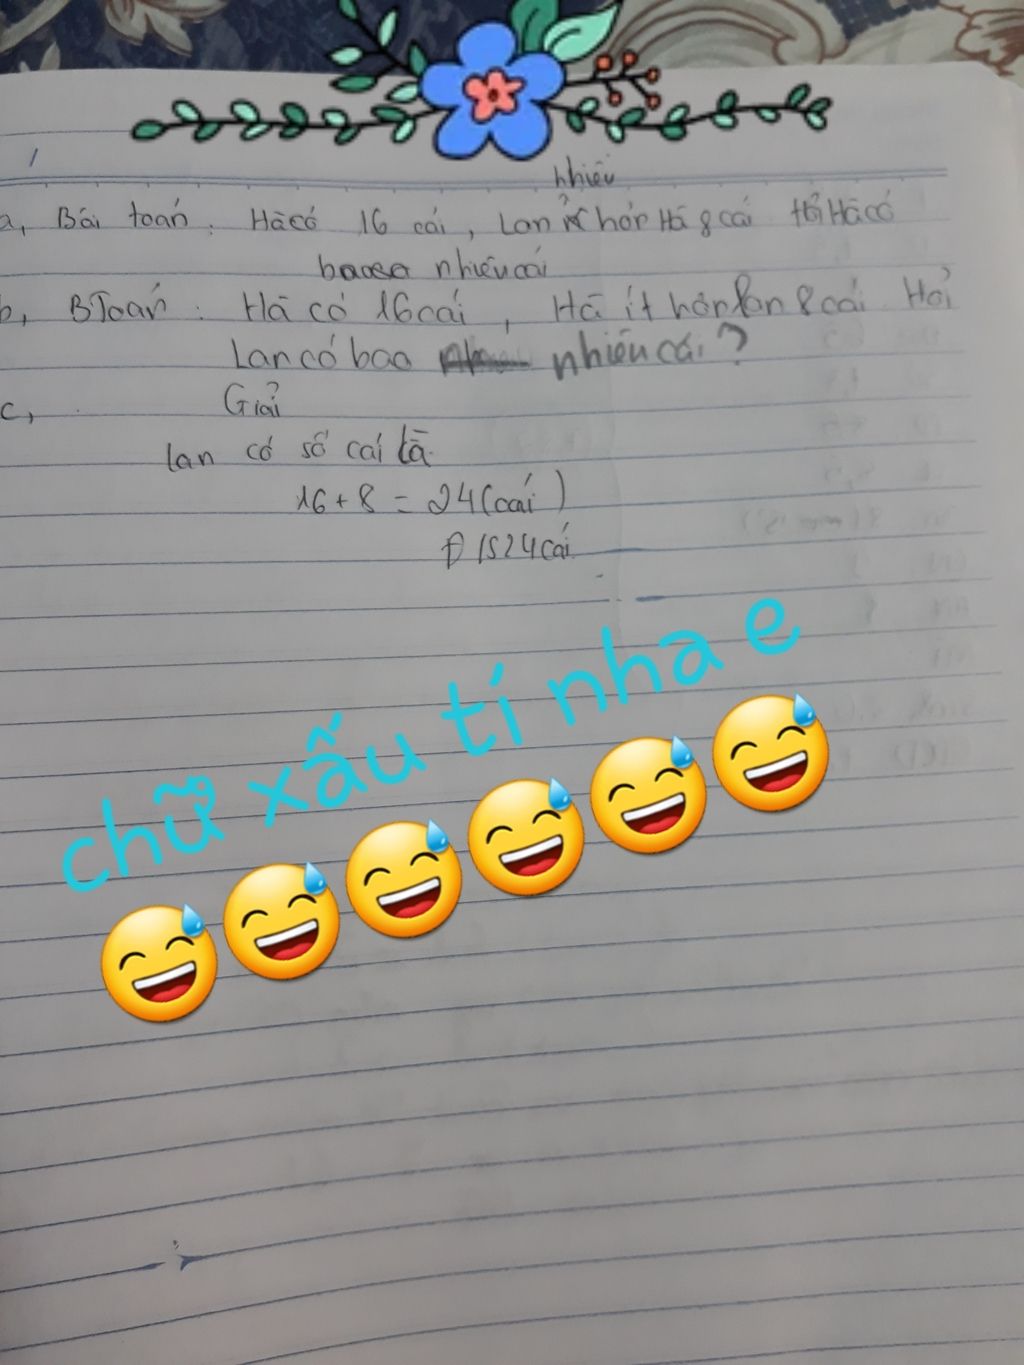 nhiều
a, Bài toán : Hà có 16 cái, Lan hơn Hà 8 cái Hỏi Hà có
bao nhiêu cái
b, BToán : Hà có 16 cái, Hà ít hơn Lan 8 cái Hỏi
Lan có bao nhiêu cái?
c, Giải
lan có số cái là
16 + 8 = 24 (cái)
Đ/S 24 cái
chữ xấu tí nha e